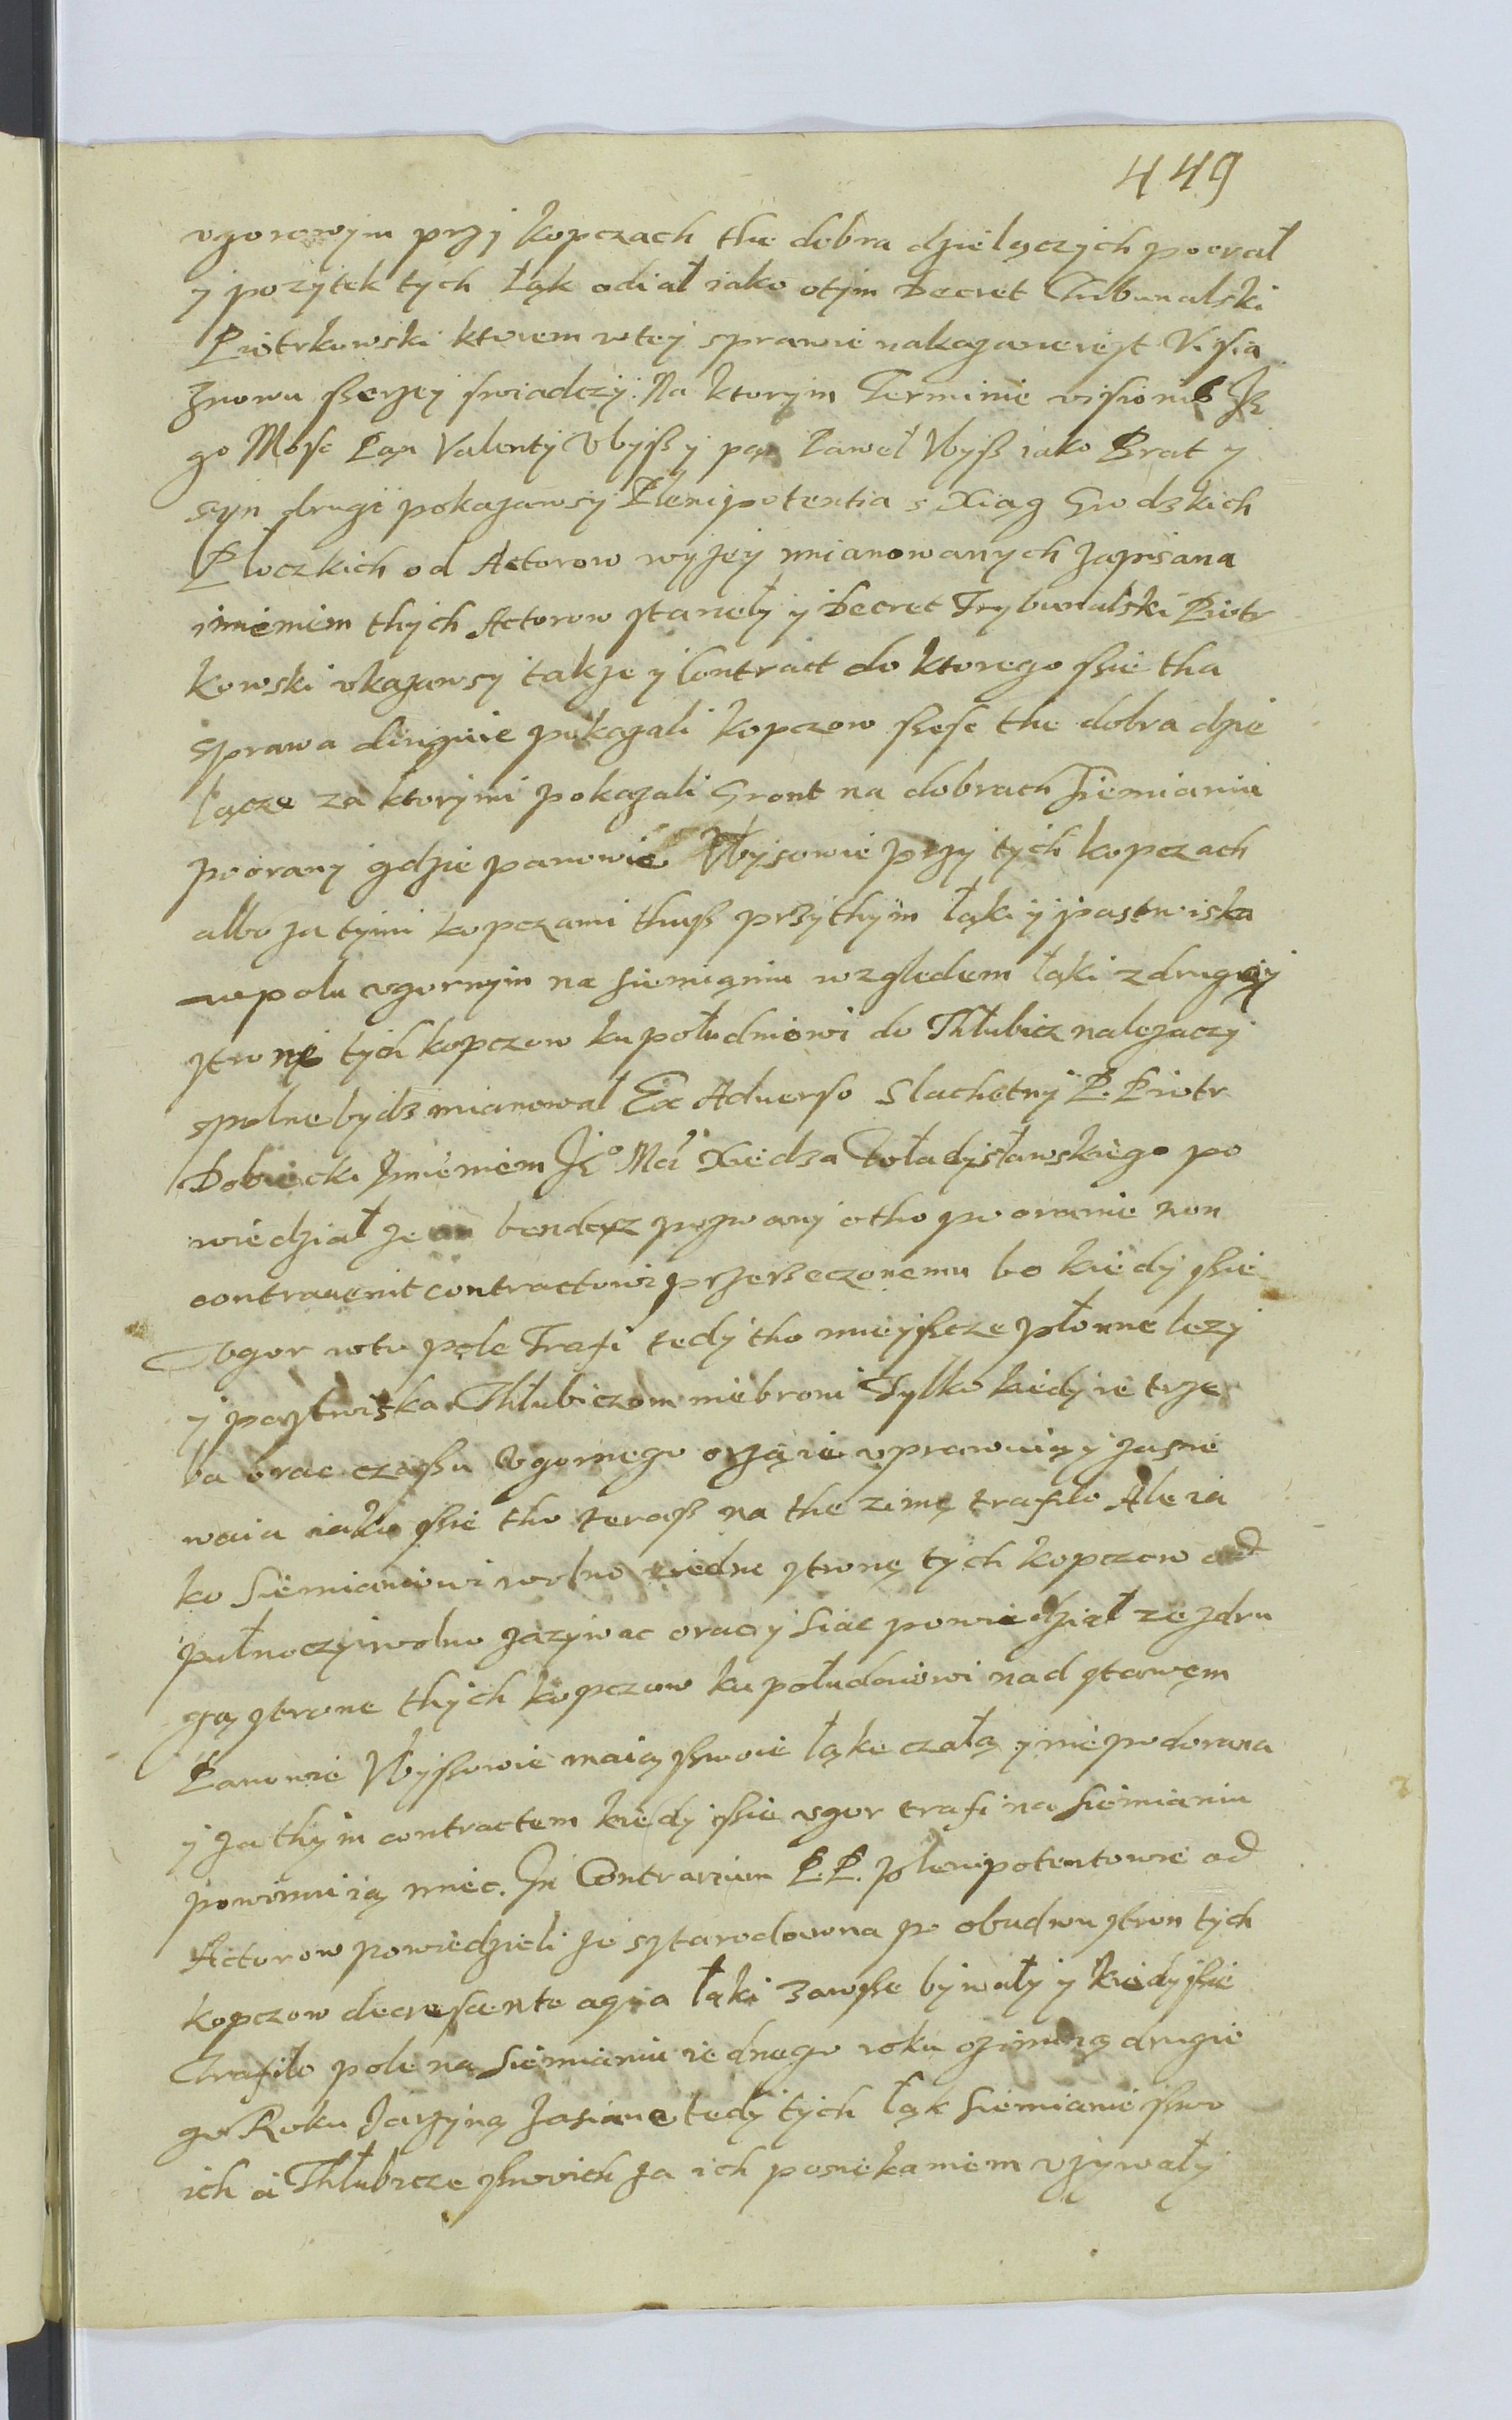 449
vgorowym przj kopczach the dobra dzielączych poorał
y pozÿtek tych łąk odiał iako otÿm Decret Tribunalski
Piotrkowski ktorem wteÿ sprawie nakazane iest Visia
znowu sserzeÿ swiadczÿ. Na ktorÿm Terminie visionis Je
go Mosc Pan Valentÿ Vbÿss y pan Paweł Vbÿss iako Brat y
sÿn drugi pokazawsÿ Plenipotentia s Xiąg Grodzkich
Płoczkich od Actorow wyzeÿ mianowanych zapisana
imieniem thÿch Actorow staneły ÿ Decret Trybunalski Piotr
kowski vkazawsy takze ÿ Contract do ktorego ssie tha
sprawa ciągnie pokazali kopczow ssesc the dobra dzie
lącze za ktorÿmi pokazali Gront na dobrach Siemianiu
poorany gdzie panowie Vbÿsowie przÿ tÿch kopczach
albo za tÿmi kopczami thuss przÿthÿm łąki ÿ pastwiska
wpolu vgornÿm na Siemianiu wzgledem łąki zdrugieÿ
stronÿ tÿch kopczow ku południowi do Thłubicz nalezaczÿ
spolne bydz mianował Ex Aduerso Slachetnÿ P. Piotr
Dobiecki Imieniem Jeº Mci Xiedza Władysławskiego po
wiedział ze on bendącz pozwany otho pooranie non
contrauenit contractowi przerzeczonemu bo kiedÿ ssie
Vgor wtu pole Trafi tedÿ tho mieÿscze płonne lezÿ
ÿ pastwiska Thłubiczom niebroni Tylko kiedÿ ie trze
ba orac czassu Vgornego orząie vprawuią ÿ zasie
waia iako ssie tho terass na the zimę trafiło Ale ia
ko Siemianiowi wolno ziedne stronę tÿch kopczow od
pułnoczÿ wolno zazÿwac orac ÿ siac powiedział ze zdru
gą strone thÿch kopczow ku południowi nad stawem
Panowie Vbÿssowie maią sswoie łąke czałą ÿ niepodorana
ÿ za thÿm contractem kiedÿ ssie vgor trafi na Siemianiu
powinni ią miec. In Contrarium P.P. plenipotentowie od
Actorow powiedzieli ze sztarodowna po obudwu stron tÿch
kopczow decrescente aqua łąki zawsse bÿwałÿ ÿ kiedÿ ssie
Trafiło pole na Siemianiu iednego roku ozimią drugie
go Roku Jarzÿną zasiane tedÿ tÿch łąk Siemianie sswo
ich a Thłubicze sswoich za ich posiekaniem vzÿwałÿ